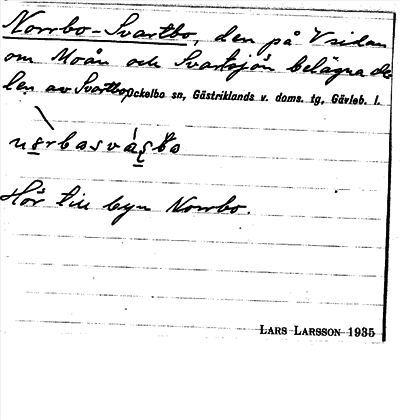 Norrbo-Svartbo, den på V sidan
om Moån och Svartsjön belägna de
len av Svartbo, Ockelbo sn, Gästriklands v. doms. tg, Gävleb. l.
Hör till byn Norrbo.
LARS LARSSON 1935